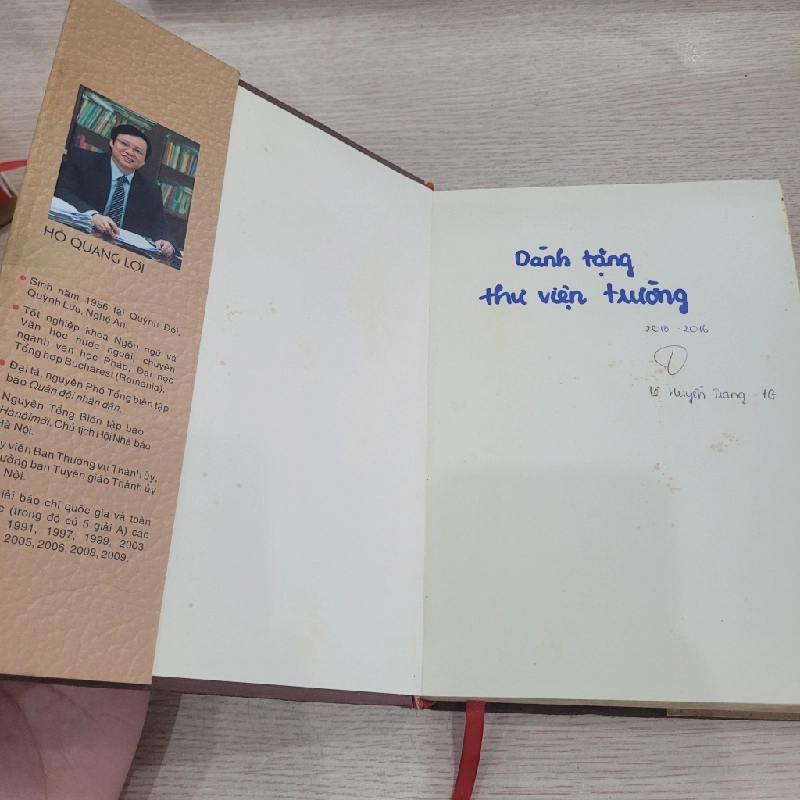 HỒ QUANG LỢI
Sinh năm 1956 tại Quỳnh Đôi,
Quỳnh Lưu, Nghệ An.
Tốt nghiệp khoa Ngôn ngữ và
Văn học nước ngoài, chuyên
ngành văn học Pháp, Đại học
Tổng hợp Bucharest (Romania).
Đại tá, nguyên Phó Tổng biên tập
báo Quân đội nhân dân.
Nguyên Tổng Biên tập báo
Hànộimới, Chủ tịch Hội Nhà báo
Hà Nội.
viên Ban Thường vụ Thành ủy,
ban Tuyên giáo Thành ủy
Nội.
báo chí quốc gia và toàn
(trong đó có 5 giải A) các
1991, 1997, 1999, 2003
2005, 2006, 2008, 2009.
Dành tặng
thư viện trường
- 2016
Huyền Trang